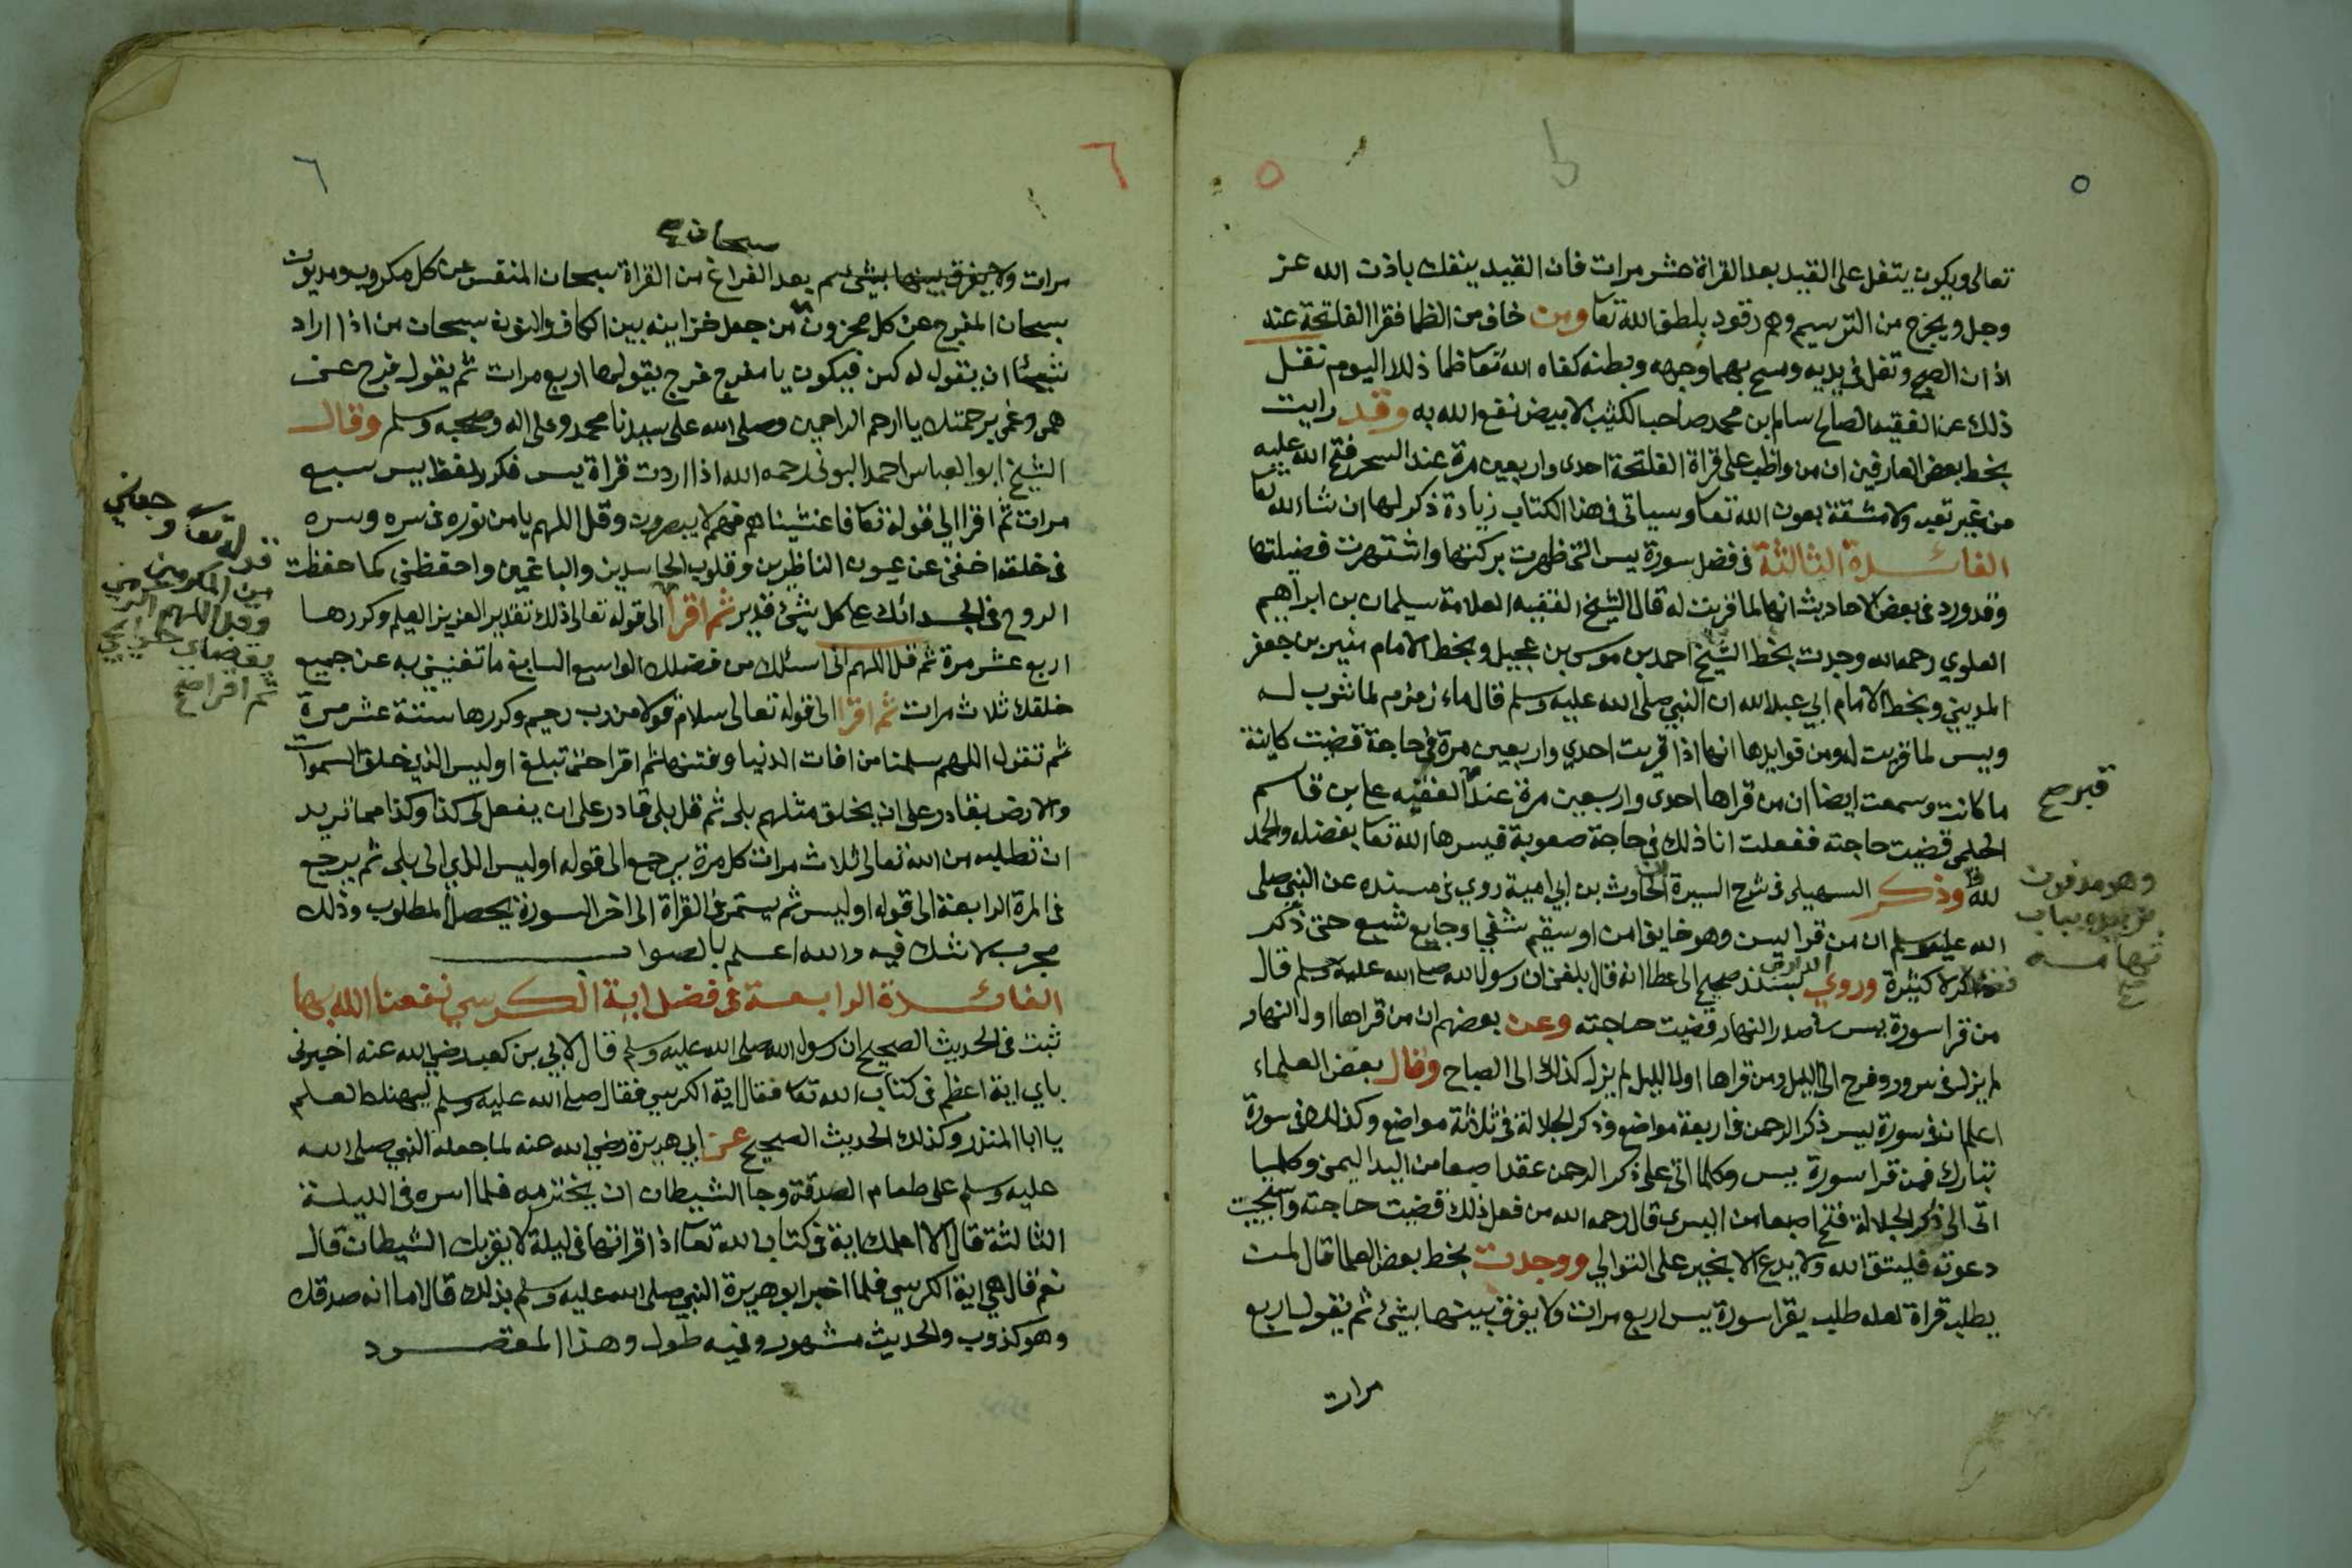 ٥
٥
تعالى ويكون يتفل على القيد بعد القراة عشر مرات فان القيد ينفك باذن الله عز
وجل ويخرج من الترسيم وهم رقود بلطف الله تعا ومن خاف من الظما فقرا الفاتحة عند
الاذان الصبح وتفل في يديه ومسح بهما وجهه وبطنه كفاه الله تعا ظما ذلك اليوم نقل
ذلك عن الفقيه الصالح سام بن محمد صاحب الكثيب الابيض نفع الله به وقد رايت
بخط بعض العارفين ان من واظب على قراة الفاتحة احدى واربعين مرة عند السحر فتح الله عليه
من غير تعب ولا مشقة بعون الله تعا وسياتي في هذا الكتاب زيادة ذكر لها ان شاء الله تعا
الفائدة الثالثة في فضل سورة يس التي ظهرت بركتها واشتهرت فضيلتها
وقد ورد في بعض الاحاديث انها لما قريت له قال الشيخ الفقيه العلامة سليمان بن ابراهيم
العلوي رحمه الله وجدت بخط الشيخ احمد بن موسى بن عجيل وبخط الامام بن جعفر
المديني وبخط الامام ابي عبد الله ان النبي صلى الله عليه وسلم قال ماء زمزم لما شرب له
ويس لما قريت له ومن فوايدها انها اذا قريت احدى واربعين مرة في حاجة قضيت كاينة
ما كانت وسمعت ايضا ان من قراها احدى واربعين مرة عند الفقيه علي بن قاسم
الحلمي قضيت حاجته ففعلت انا ذلك في حاجة صعوبة فيسرها الله تعا بفضله والحمد
لله وذكر السهيلي في شرح السيرة الحارث بن ابي امية روي في مسنده عن النبي صلى
الله عليه وسلم ان من قرا يس وهو خايف امن او سقيم شفي او جايع شبع حتى ذكر
كثيرة وروي الدارمي بسند صحيح الى عطا انه قال بلغني ان رسول الله صلى الله عليه وسلم قال
من قرا سورة يس في صدر النهار قضيت حاجته وعن بعضهم ان من قراها اول النهار
لم يزل في سرور وفرح الى الليل ومن قراها اول الليل لم يزل كذلك الى الصباح وقال بعض العلماء
اعلم ان في سورة يس ذكر الرحمن في اربعة مواضع وذكر الجلالة في ثلاثة مواضع وكذلك في سورة
تبارك فمن قرا سورة يس وكلما اتى على ذكر الرحمن عقد اصبعا من اليد اليمنى وكلما
اتى الى ذكر الجلالة فتح اصبعا من اليسرى قال رحمه الله من فعل ذلك قضيت حاجته واستجيبت
دعوته فليتق الله ولا يدع الا بخير على التوالي ووجدت بخط بعض العلما قال لمن
يطلب قراة لعله طلب يقرا سورة يس اربع مرات ولا يفرق بينها بشئ ثم يقول اربع
مرات
قبر صح
وهو مدفون
بباب
٦
٦
سبحان صح
مرات ولا يفرق بينها بشئ ثم بعد الفراغ من القراة سبحان المنفس عن كل مكروب ومديون
سبحان المفرج عن كل محزون من جعل خزاينه بين الكاف والنون سبحان من اذا اراد
شيئا ان يقول له كن فيكون يا مفرج فرج يقولها اربع مرات ثم يقول فرج عني
همي وغمي برحمتك يا ارحم الراحمين وصلى الله على سيدنا محمد وعلى اله وصحبه وسلم وقال
الشيخ ابو العباس احمد البوني رحمه الله اذا اردت قراة يس فكرر لفظ يس سبع
مرات ثم اقرا الى قوله تعا فاغشيناهم فهم لا يبصرون وقل اللهم يا من نوره في سره وسره
في خلقه اخفني عن عيون الناظرين وقلوب الحاسدين والباغيين واحفظني كما حفظت
الروح في الجسد انك على كل شئ قدير ثم اقرا الى قوله تعالى ذلك تقدير العزيز العليم وكررها
اربع عشر مرة ثم قل اللهم اني اسئلك من فضلك الواسع السابغ ما تغنيني به عن جميع
خلقك ثلاث مرات ثم اقرا الى قوله تعالى سلام قولا من رب رحيم وكررها ستة عشر مرة
ثم تقول اللهم سلمنا من افات الدنيا وفتنها ثم اقرا حتى تبلغ اوليس الذي خلق السموات
والارض بقادر على ان يخلق مثلهم بلى ثم قل بلى قادر على ان يفعل لي كذا وكذا مما تريد
ان تطلبه من الله تعالى ثلاث مرات كل مرة يرجع الى قوله اوليس الذي الى بلى ثم يرجع
في المرة الرابعة الى قوله اوليس ثم يستمر في القراة الى اخر السورة يحصل المطلوب وذلك
مجرب لا شك فيه والله اعلم بالصواب
الفائدة الرابعة في فضل اية الكرسي نفعنا الله بها
ثبت في الحديث الصحيح ان رسول الله صلى الله عليه وسلم قال لابي بن كعب رضي الله عنه اخبرني
باي اية اعظم في كتاب الله تعا فقال اية الكرسي فقال صلى الله عليه وسلم ليهنك العلم
يا ابا المنذر وكذلك الحديث الصحيح عن ابي هريرة رضي الله عنه لما جعله النبي صلى الله
عليه وسلم على طعام الصدقة وجا الشيطان ان يختزمه فلما اسره في الليلة
الثالثة قال الا اعلمك اية في كتاب الله تعا اذا قراتها في ليلة لا يقربك الشيطان قال
نعم قال هي اية الكرسي فلما اخبر ابو هريرة النبي صلى الله عليه وسلم بذلك قال اما انه صدقك
وهو كذوب والحديث مشهور وفيه طول وهذا المقصود
قوله تعا وجعلني
من المكرمين
وقل اللهم اكرمني
بقضاء حوايجي
ثم اقرا صح